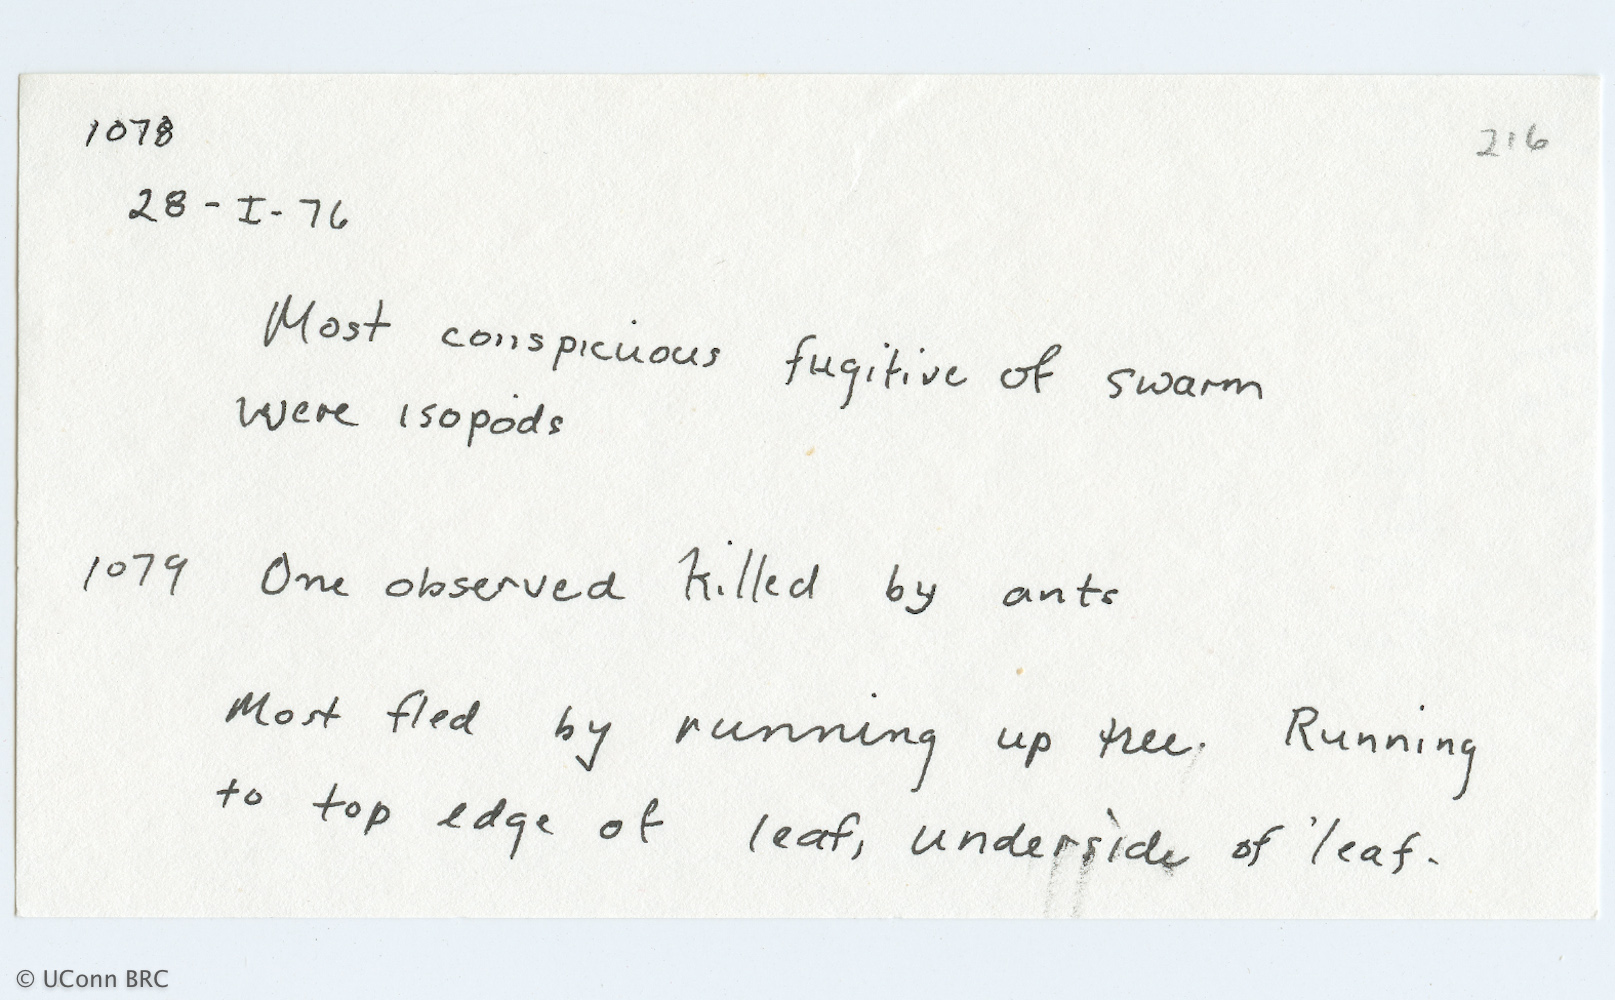 1078
216
28-I-76
Most conspicuous fugitive of swarm
were isopods
1079 One observed killed by ants
Most fled by running up tree. Running
to top edge of leaf, underside of leaf.
© UConn BRC